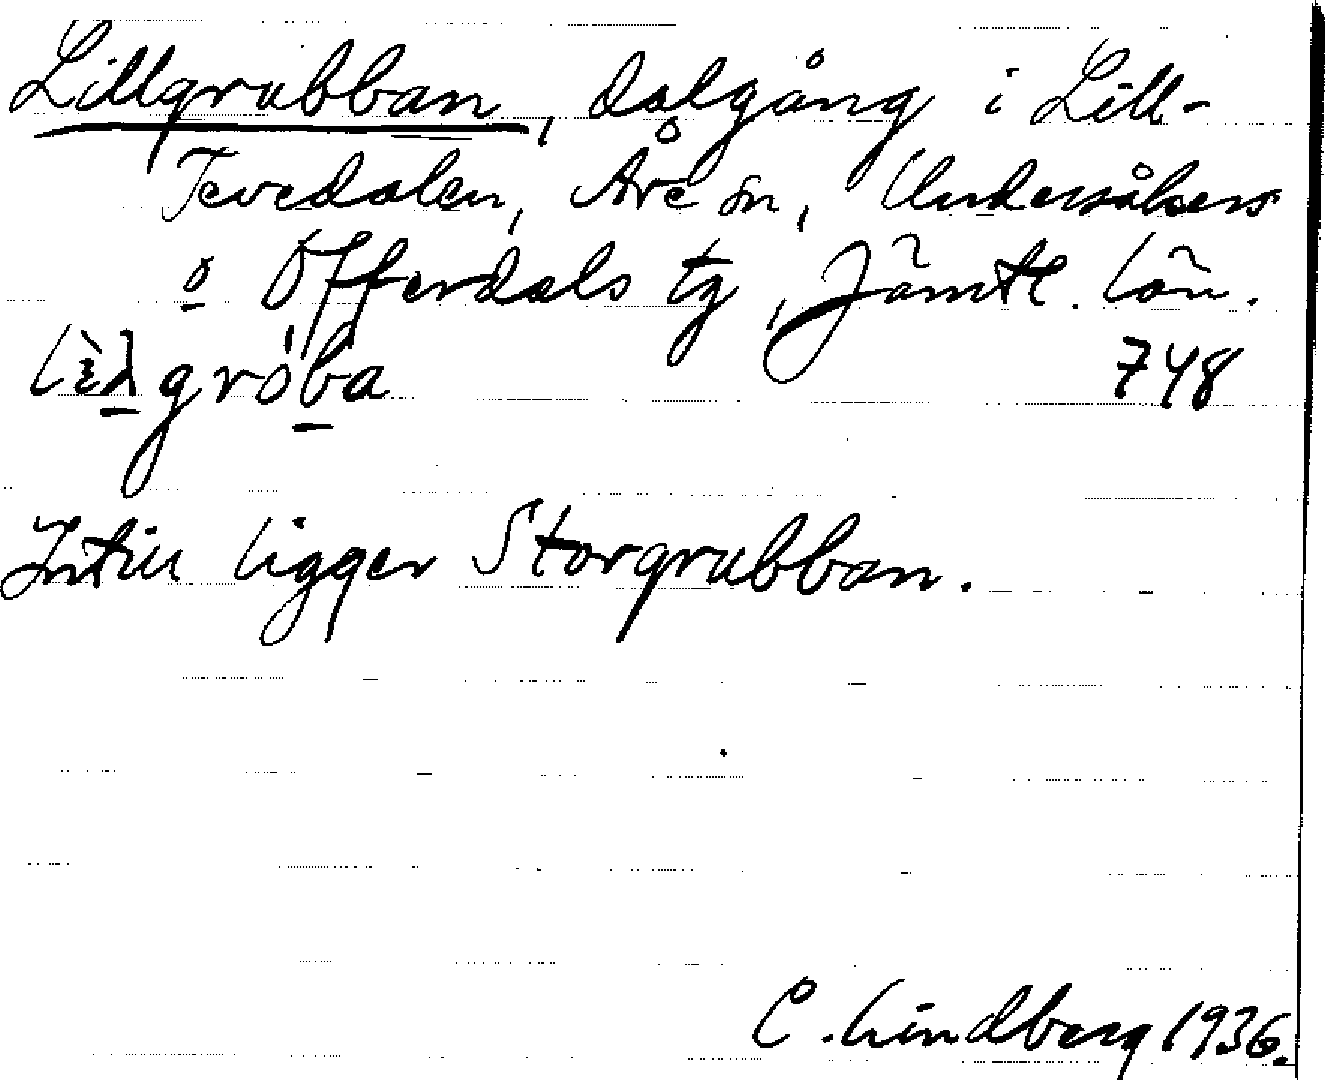 Lillgrubban, dalgång i Lill-
Tevedalen, Åre sn, Undersåkers
o Offerdals tg, Jämtl. län.
748
Intill ligger Storgrubban.
C. Lindberg 1936.